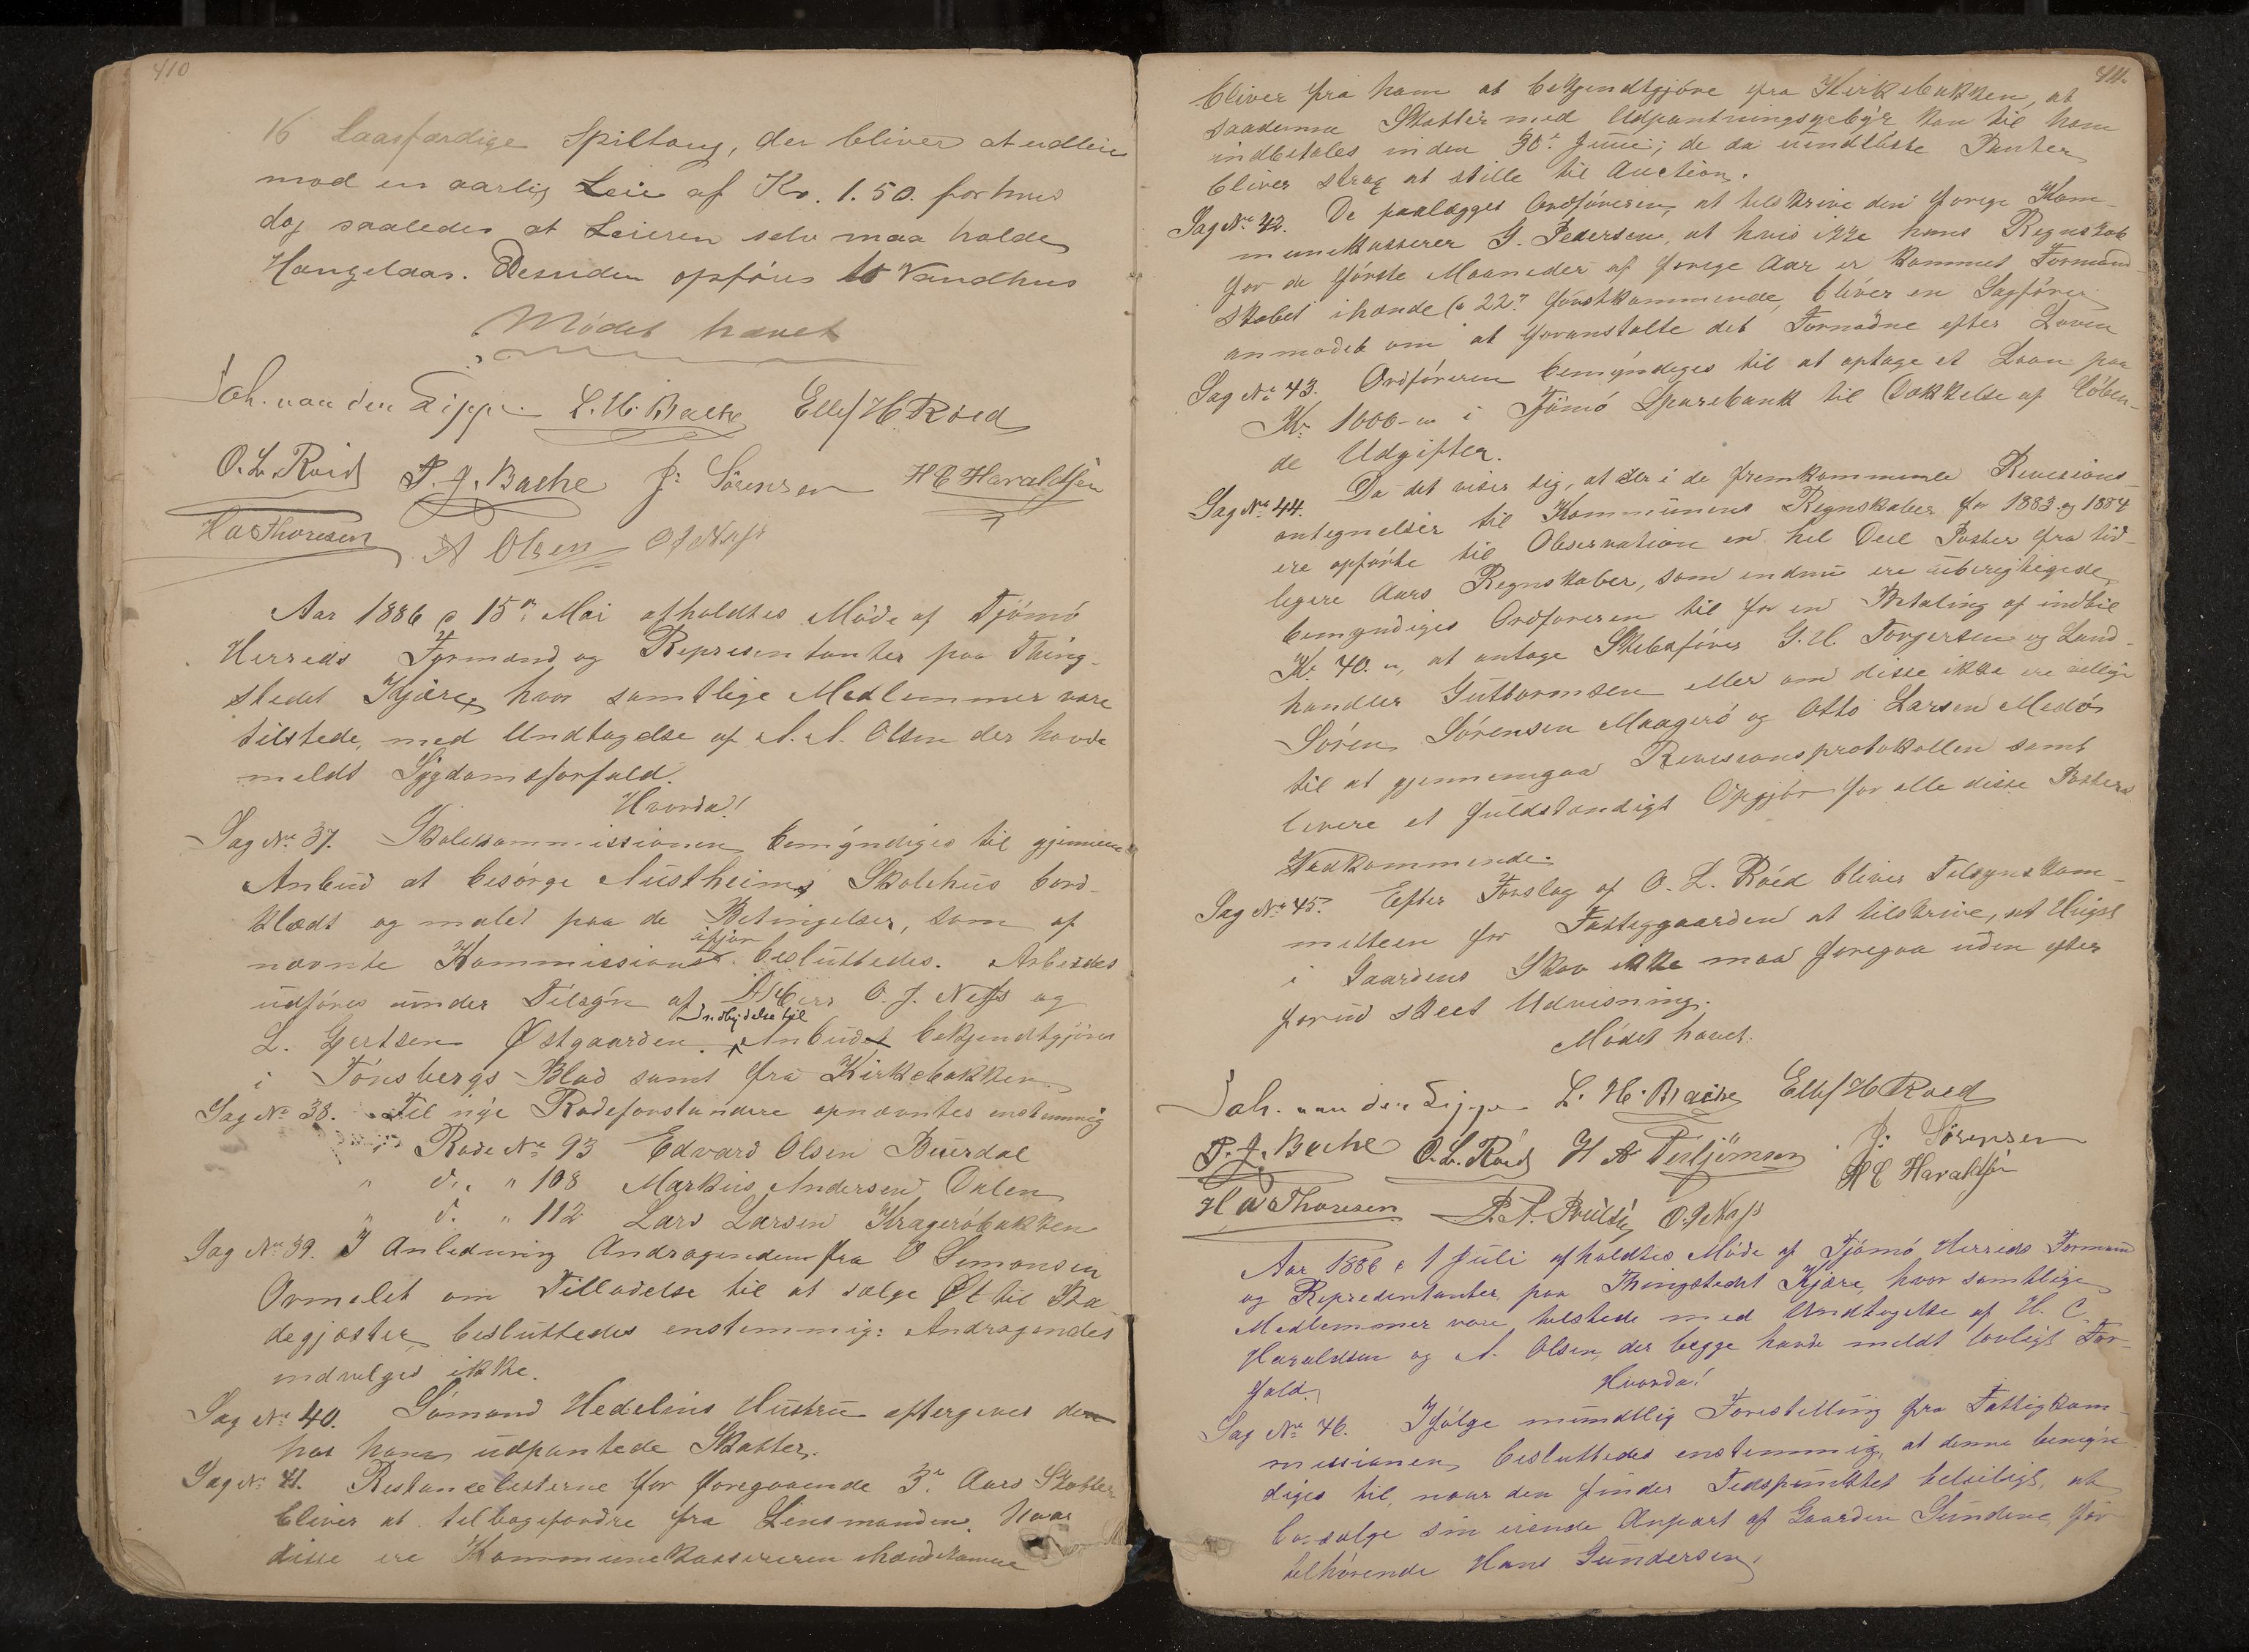 410
16 Laasfærdige Spiltoug, der bliver at udleie
mod en aarlig Leie af Kr. 1.50. for hver
dog saaledes at Leieren selv maa holde
Hængelaas. Desuden opføres to Vandhus
Mødet hævet
Joh. van der Lippe L. H. Bache Ellef H Röed
O. L. Röed P. J. Bache J: Sörensen H C Haraldsen
H A Thoresen A Olsen O J Næss
Aar 1886 d 15de Mai afholdtes Møde af Tjømø
Herreds Formænd og Representanter paa Thing-
stedet Kjære, hvor samtlige Medlemmer vare
tilstede, med Undtagelse af A. A. Olsen der havde
meldt Sygdomsforfald.
Hvorda!
Sag No 37. Skolekommissionen bemyndiges til gjennem
Anbud at besørge Austheims Skolehus bord-
klædt og malet paa de Betingelser, som af
nævnte Kommission ifjor besluttedes. Arbeidet
udføres under Tilsyn af O. J. Næss og
L. Gertsen Østgaarden. Indbydelse til Anbud bekjendtgjøres
i Tønsbergs Blad samt fra Kirkebakken
Sag No 38. Til nye Rodeforstandere opnævntes enstemmig
Rode No 93 Edvard Olsen Buerdal
" d. " 108 Markus Andersen Oalen
" d. " 112 Lars Larsen Kragerøbakken
Sag No 39. I Anledning Andragendem fra O Simonsen
Ormelet om Tilladelse til at sælge Øl til Ba-
degjæster, besluttedes enstemmig: Andragendet
indvilges ikke.
Sag No 40. Sømand Hedelius Hustru eftergives de
hos ham udpantede Skatter.
Sag No 41. Restancelisterne for foregaaende 3de Aars Skatter
bliver at tilbagefordre fra Lensmanden. Naar
disse ere Kommunekassereren ihændekomne
411.
bliver fra ham at bekjendtgjøre fra Kirkebakken, at
saadanne Skatter med Udpantningsgebyr kan til ham
indbetales inden 30te Juni; de da uindløste Panter
bliver strax at stille til Auction.
Sag No 42. De paalægges Ordføreren, at tilskrive den forrige Kom-
munekasserer G. Pedersen, at hvis ikke hans Regnskab
for de første Maaneder af forrige Aar er kommet Formand-
skabet ihænde d 22de førstkommende, bliver en Sagfører
anmodet om at foranstalte det Fornødne efter Loven
Sag No 43. Ordføreren bemyndiges til at optage et Laan paa
Kr 1000-" i Tjømø Sparebank til Dækkelse af løben-
de Udgifter.
Sag No 44. Da det viser sig, at der i de fremkommende Revisions-
antegnelser til Kommunens Regnskaber for 1883 og 1884
ere opførte til Observation en hel Deel Poster fra tid-
ligere Aars Regnskaber, som endnu ere uberigtigede
bemyndiges Ordføreren til for en Betaling af indtil
Kr 40. ", at antage Skibsfører G. H. Torgersen og Land-
handler Guttormsen eller om disse ikke ere villige
Søren Sørensen Maagerø og Otto Larsen Medø
til at gjennemgaa Revisionsprotokollen samt
levere et fuldstændigt Opgjør for alle disse Posters
Vedkommende.
Sag No 45. Efter Forslag af O. L. Röed bliver Tilsynskom-
mitteen for Fattiggaarden at tilskrive, at Hugst
i Gaardens Skov ikke maa foregaa uden efter
forud skeet Udvisning.
Mødet hævet.
Joh. van der Lippe L. H. Bache Ellef H Röed
P. J. Bache O. L. Röed H A Tertjømsen J: Sörensen
H A Thoresen O. J Næss H C Haraldsen
Aar 1886 d 1 Juli afholdtes Møde af Tjømø Herreds Formænd
og Representanter paa Thingstedet Kjære, hvor samtlige
Medlemmer vare tilstede med Undtagelse af H. C.
Haraldsen og A. Olsen, der begge havde meldt lovligt For-
fald.
Hvorda!
Sag No 46. Ifølge mundtlig Forestilling fra Fattigkom-
missionen besluttedes enstemmig, at denne bemyn-
diges til, naar den finder Tidspunktet beleiligt, at
bortsælge sin eiende Anpart af Gaarden Sundene, før
tilhørende Hans Gundersen,